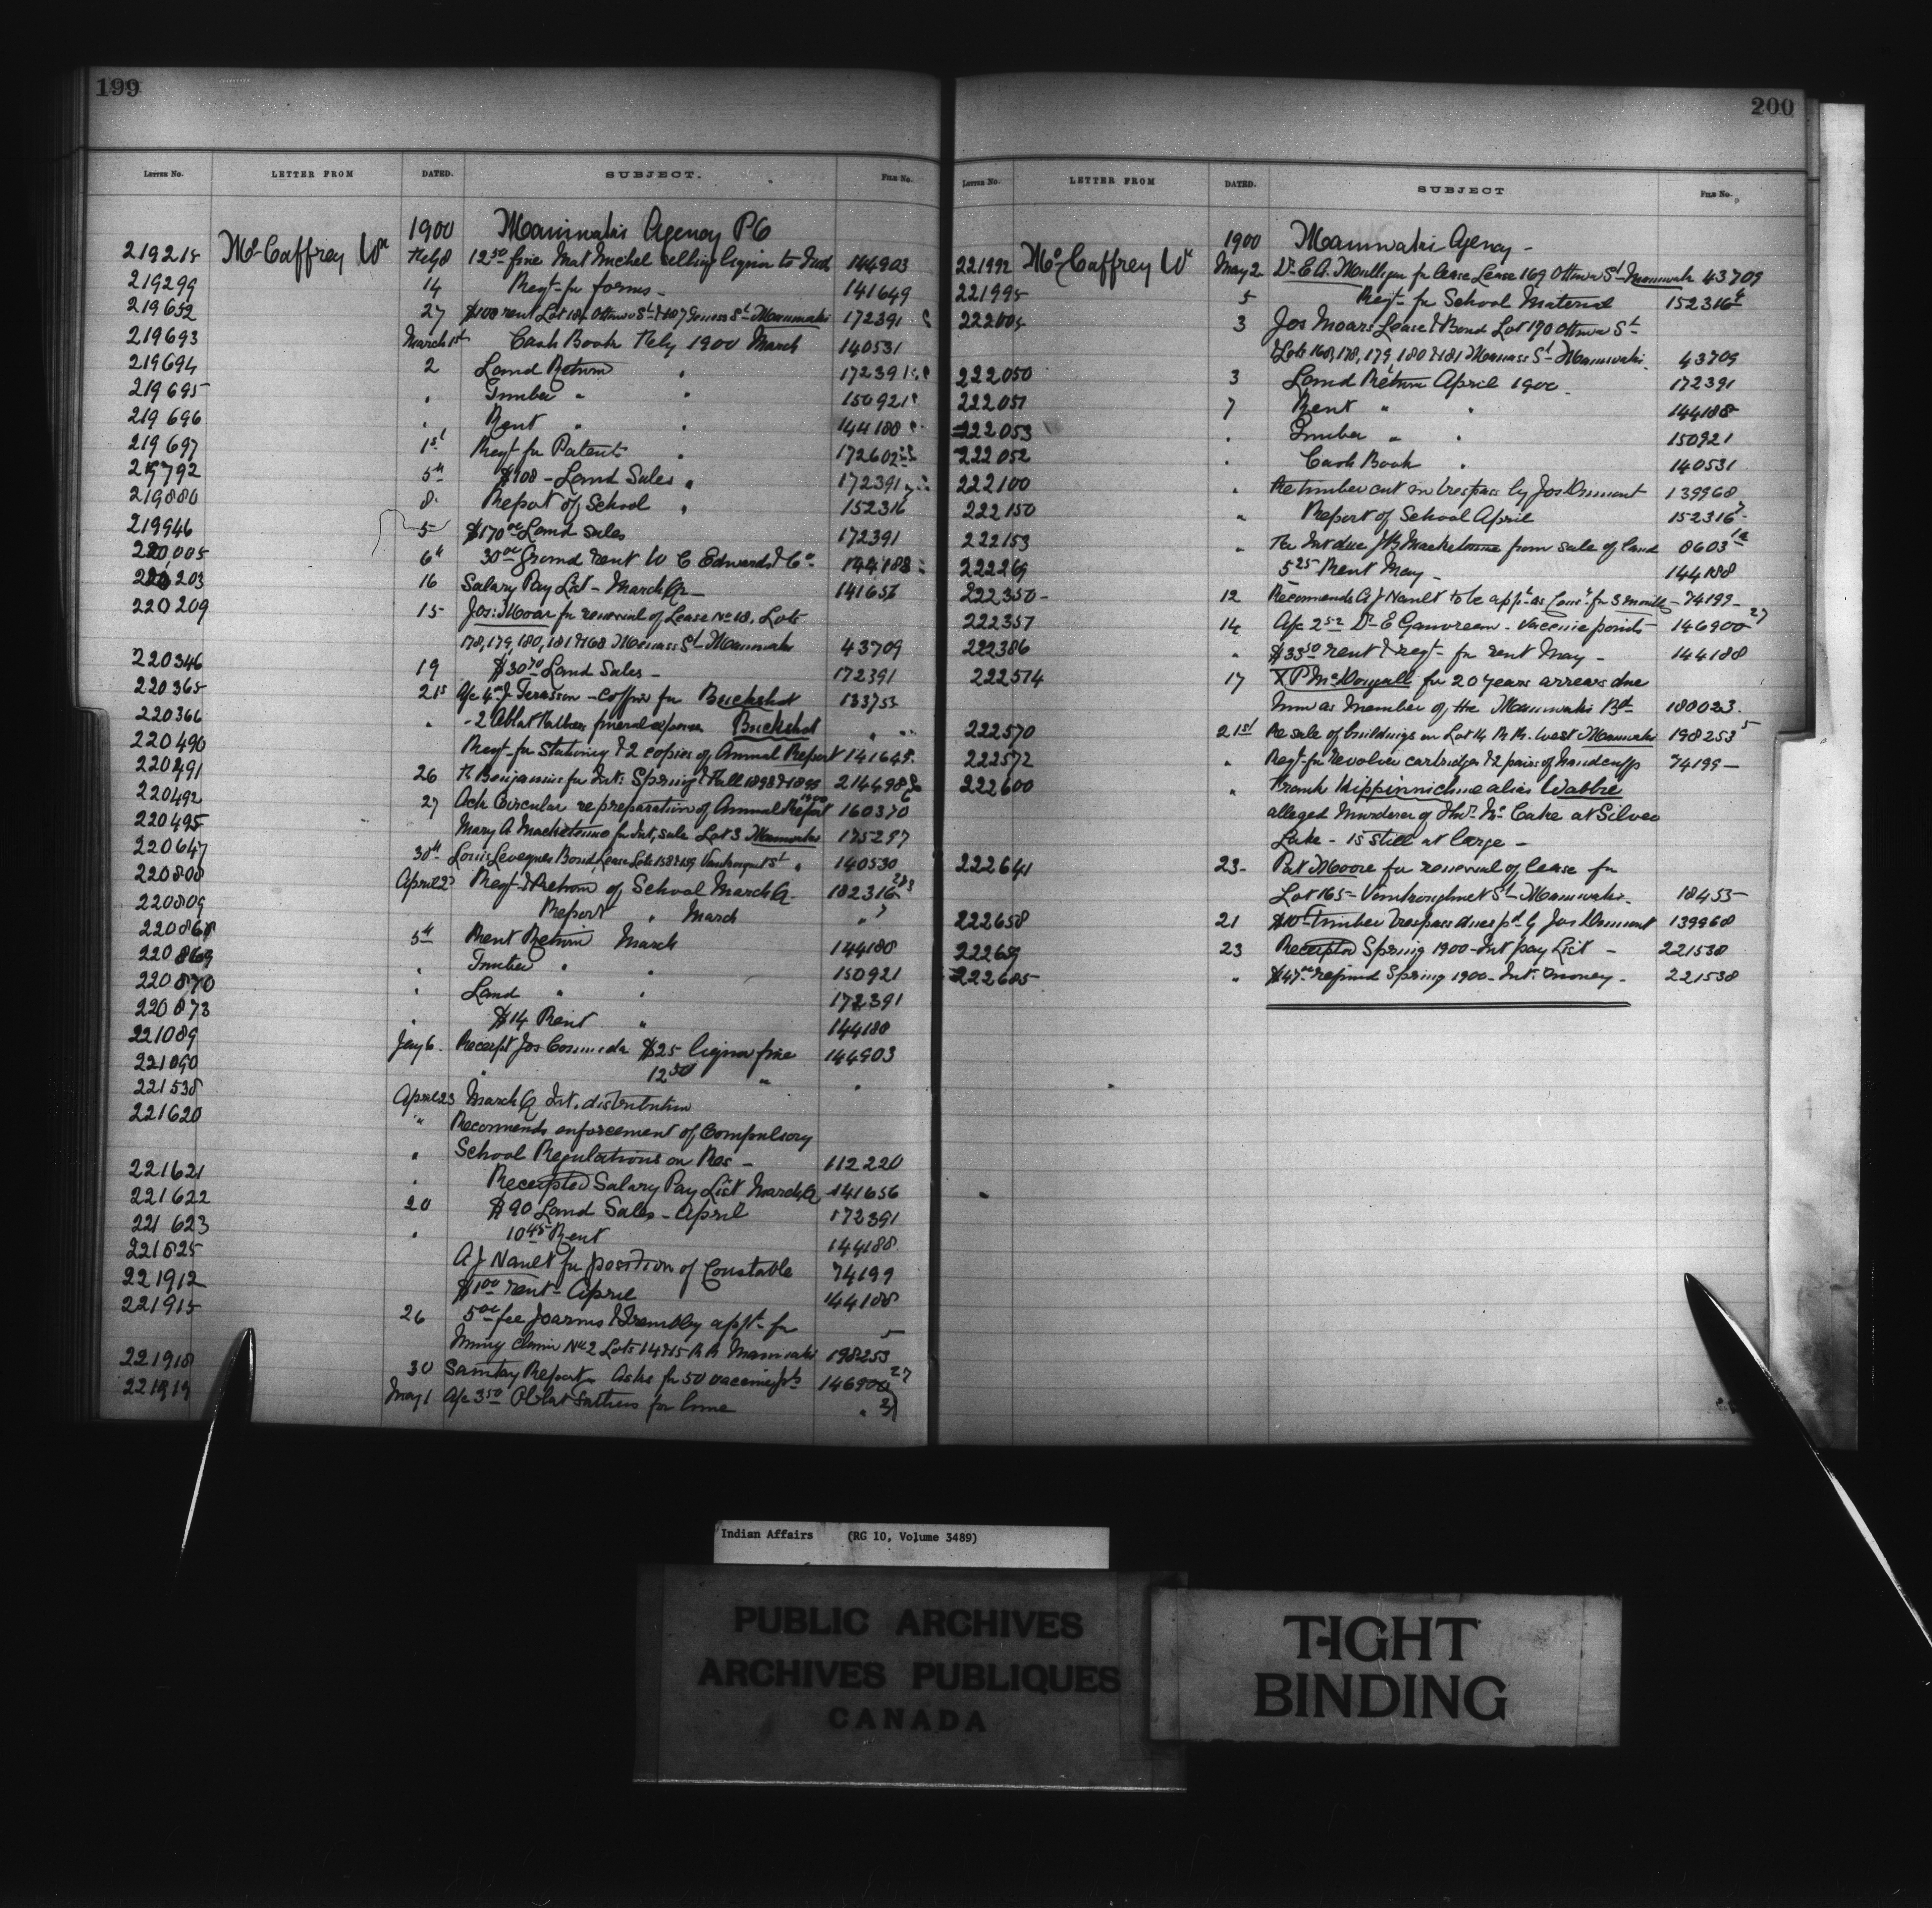 199
LETTER No. LETTER FROM DATED. SUBJECT. FILE No.
1900 Maniwaki Agency PQ
219215 McCaffrey Wm Feby 8 12 50 fine Mat Michel selling liquor to Inds 144903
219299 14 Reqt for forms - 141649
219652 27 $100 rent Lot Ottawa St Maniwaki 172391
219693 March 1st Cash Book Feby 1900 March 140531
219694 2 Land Return " 172391
219695 " Timber " " 150921
219696 " Rent " " 144188
219697 1st Reqt for Patents " 172602
219792 5th $108 - Land Sales " 172391
219880 8 Report of School " 152316
219946 5 $170 00 Land Sales 172391
220005 6th 30 00 Ground rent W C Edwards & Co 144188
220203 16 Salary Pay List - March Qr - 141656
220209 15 Jos: Moar for renewal of Lease No 18, Lots
178, 179, 180, 181 & 168 Maniwaki 43709
220346 19 $30 70 Land Sales - 172391
220365 21st A/c 4 00 J. Ferasson - coffin for Buckshot 133753
220366 " - 2 Oblat Fathers funeral expenses Buckshot " "
220490 Reqt for Stationery & 2 copies of Annual Report 141648
220491 26 Benjamin for Int: Spring & Fall 1898 & 1899 214498
220492 27 Ack Circular re preparation of Annual Report 1900 160370 6
220495 Mary A Machetimo for Int, sale Lot 3 Maniwaki 175297
220647 30th Louis Leveques Bond, Lease Lots 158 & 159 Vaudreuil St " 140530
220808 April 2 Reqt & Return of School March Qr. 152316
220809 Report " March " 7
220868 5th Rent Return March 144188
220869 " Timber " " 150921
220870 " Land " " 172391
220873 " $14 Rent " 144188
221089 Jany 6. Receipt Jos Commeda $25 liquor fine 144903
221090 " 12 50 " "
221538 April 23 March Q Int. distribution
221620 " Recommends enforcement of Compulsory
" School Regulations on Res - 112220
221621 " Receipted Salary Pay List March Q 141656
221622 20 $90 Land Sales - April 172391
221623 " 10 45 Rent 144188
221625 A J Nault for position of Constable 74199
221912 $1 00 rent - April 144188
221915 26 5 00 fee Tremblay appt. for
Mining Claim No 2 Lots 14 & 15 R R Maniwaki 198253 5
221918 30 Sanitary Report, Asks for 50 vaccine pts 146900 27
221919 May 1 A/c 3 50 Oblat Fathers for lime " 31
200
LETTER No. LETTER FROM DATED. SUBJECT FILE No.
1900 Maniwaki Agency -
221992 McCaffrey W May 2 Dr E A. Mulligan for lease Lease 169 Ottawa St Maniwaki 43709
221995 5 Reqt for School Material 152316 6
222004 3 Jos Moars Lease & Bond Lot 170 Ottawa St
& Lots 168, 178, 179, 180 & 181 St Maniwaki. 43709
222050 3 Land Return April 1900. 172391
222051 7 Rent " " 144188
222053 " Timber " " 150921
222052 " Cash Book " 140531
222100 " Re timber cut in trespass by Jos Dumont 139968
222150 " Report of School April 152316 7
222153 " Re Int due J B Machetimo from sale of land 8603 12
222269 5 25 Rent May - 144188
222350 - 12 Recommends A J Nault to be appt as Const for 3 months - 74199 -
222357 14 A/c 2 52 Dr E Gauvreau - Vaccine points 146900 27
222386 " $33 50 rent & reqt for rent May - 144188
222574 17 X P McDougall for 20 years arrears due
him as member of the Maniwaki Bd 180023.
222570 21st Re sale of buildings on Lot 14 R R. West Maniwaki 198253 5
222572 " Reqt for Revolver cartridges & 2 pairs of handcuffs 74199 -
222600 " Frank Kippinnichine alias Wabbie
alleged Murderer of Thos Mc Cake at Silver
Lake - is still at large -
222641 23 - Pat Moore for renewal of lease for
Lot 165 - St Maniwaki. 18455
222658 21 $10 Timber trespass dues pd by Jos Dumont 139968
222659 23 Receipted Spring 1900 - Int pay List - 221538
222685 " $47 00 refund Spring 1900 - Int. money - 221538
Indian Affairs (RG 10, Volume 3489)
PUBLIC ARCHIVES
ARCHIVES PUBLIQUES
CANADA
TIGHT
BINDING